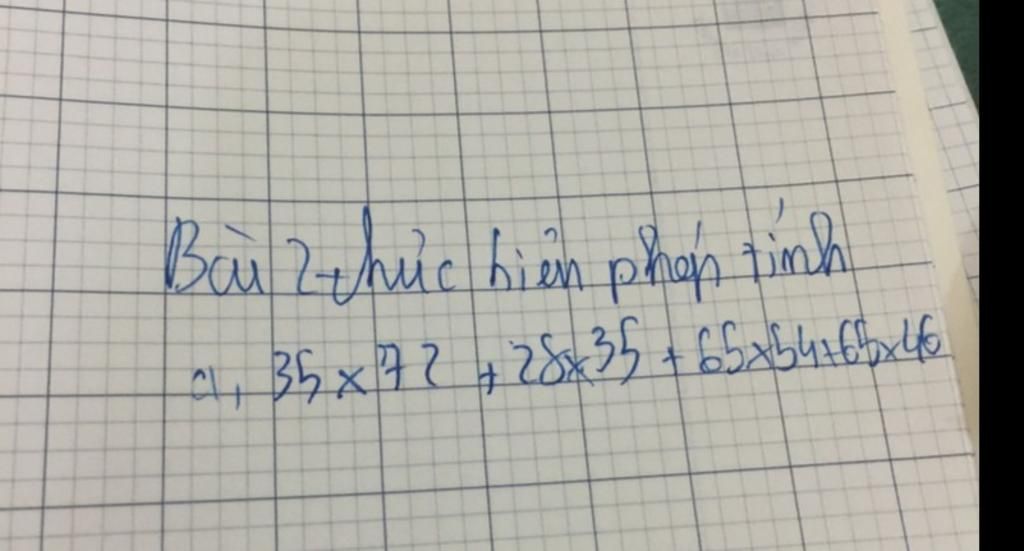 Bài 2 thực hiện phép tính
a, 35 x 72 + 28x35 + 65x54+65x46